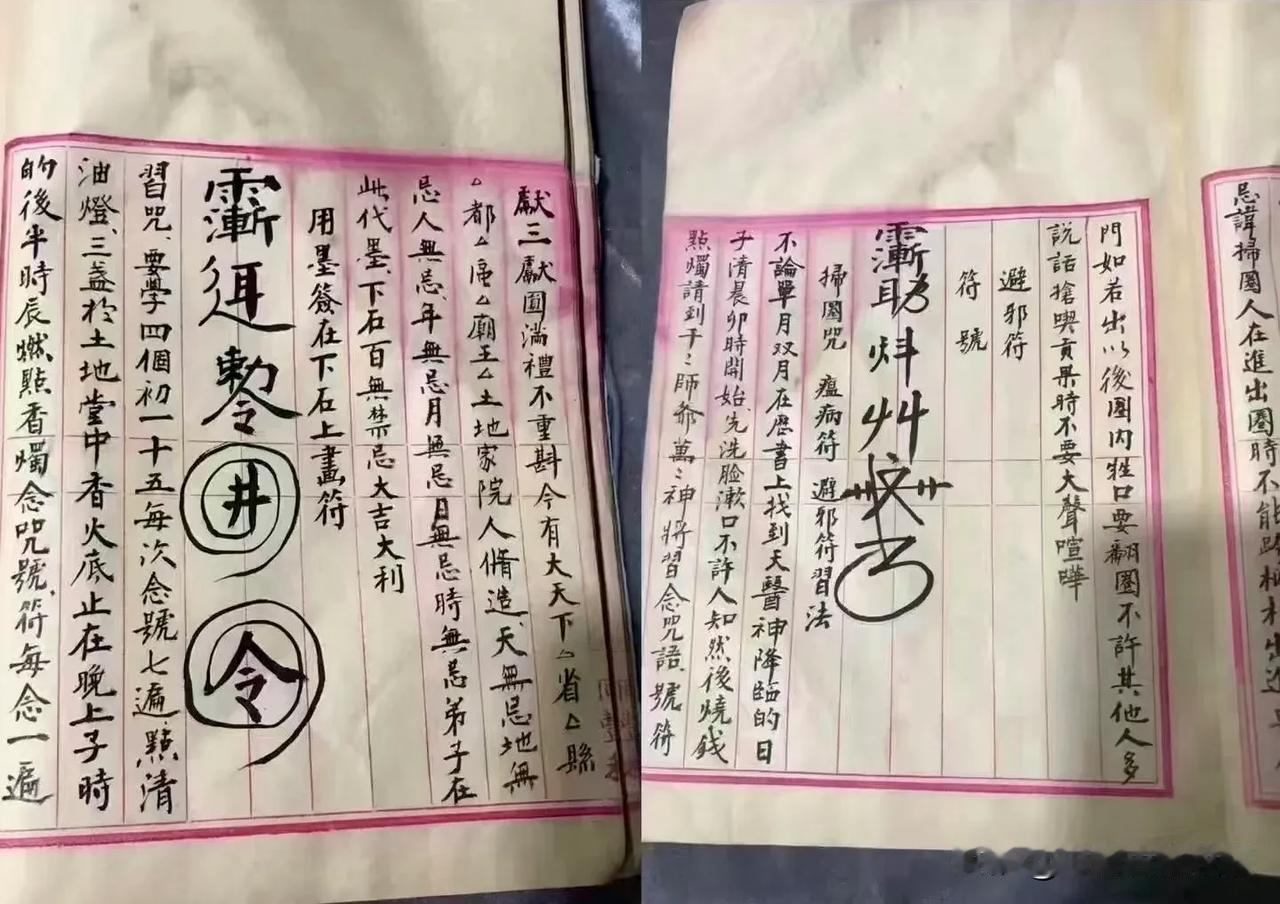 獻三獻圓滿禮不重斟今有大天下△省△縣
△都△△廟王△土地家院人脩造天無忌地無
忌人無忌年無忌月無忌日無忌時無忌弟子在
此代墨下石百無禁忌大吉大利
用墨簽在下石上畫符
井
令
習咒、要學四個初一十五每次念號七遍、點清
油燈、三盞於土地堂中香火底止在晚上子時
的後半時辰燃點香燭念咒號、符每念一遍
忌諱掃圈人在進出圈時不能
門如若出以後圈内牲口要翻圈不許其他人多
説話搶喫貢果時不要大聲喧嘩
避邪符
符號
掃圈咒 瘟病符 避邪符習法
不論單月双月在歷書上找到天醫神降臨的日
子清晨卯時開始、先洗脸漱口不許人知然後燒錢
點燭請到千〻師爺萬〻神將習念咒語、號符